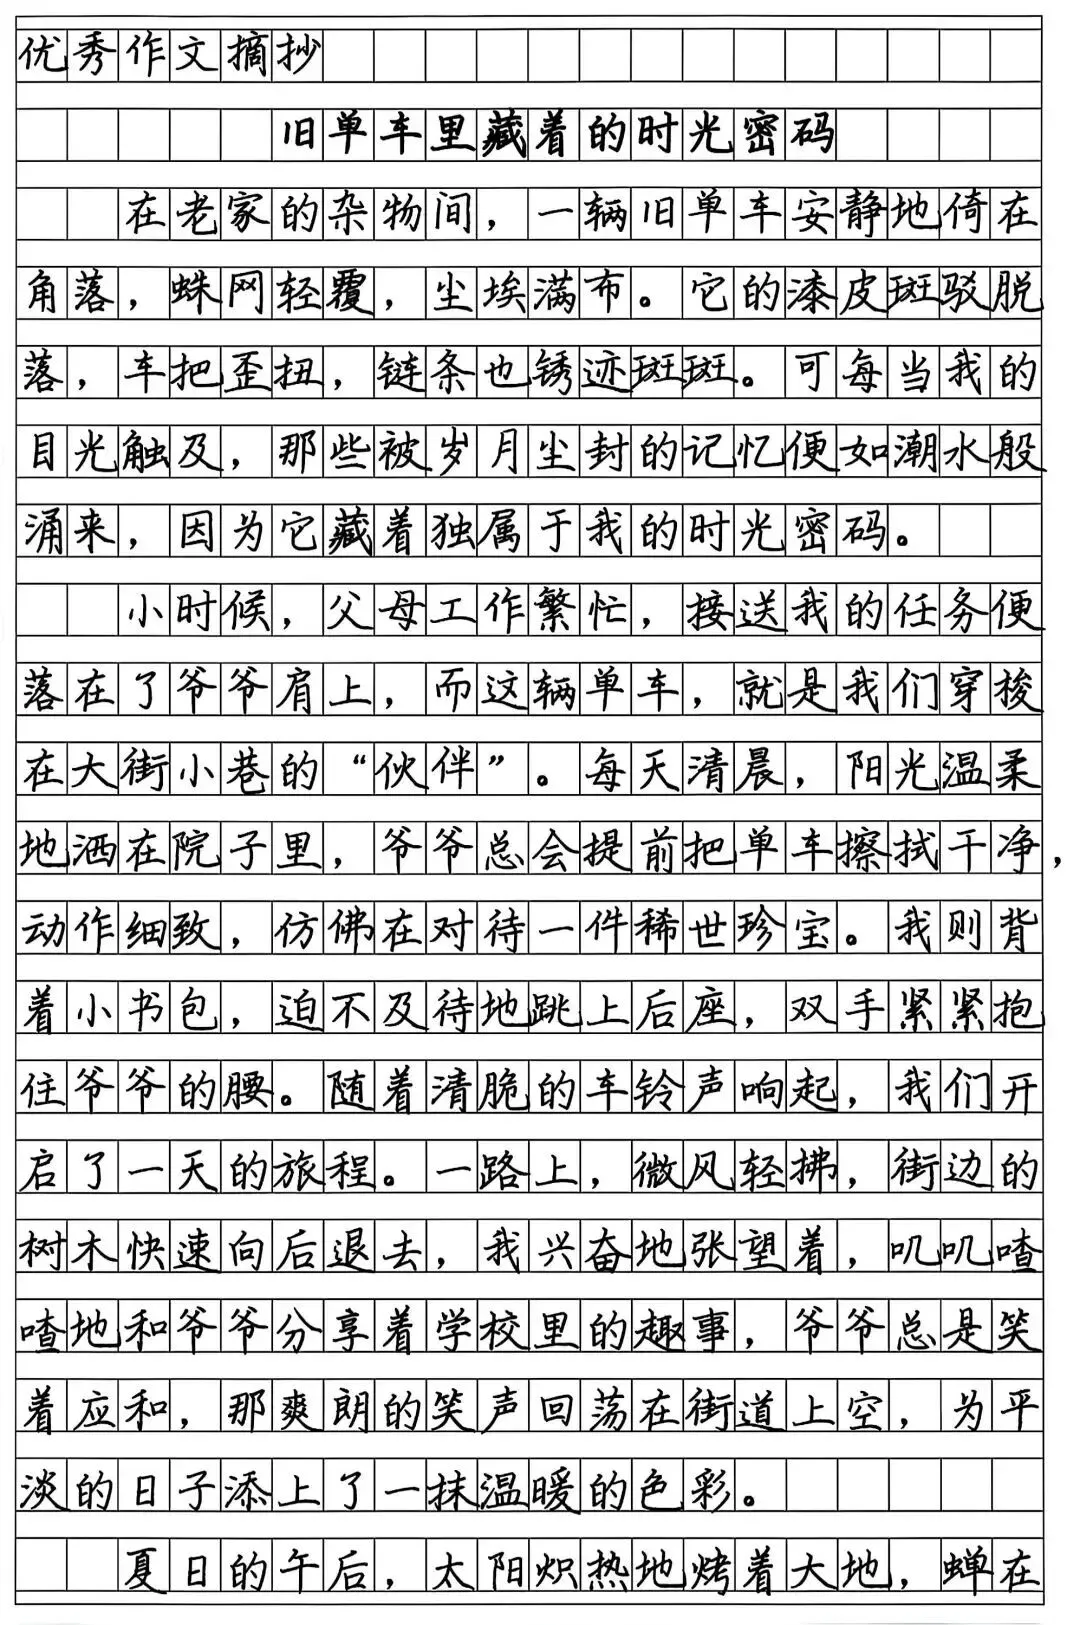 优秀作文摘抄
旧单车里藏着的时光密码
在老家的杂物间，一辆旧单车安静地倚在
角落，蛛网轻覆，尘埃满布。它的漆皮斑驳脱
落，车把歪扭，链条也锈迹斑斑。可每当我的
目光触及，那些被岁月尘封的记忆便如潮水般
涌来，因为它藏着独属于我的时光密码。
小时候，父母工作繁忙，接送我的任务便
落在了爷爷肩上，而这辆单车，就是我们穿梭
在大街小巷的“伙伴”。每天清晨，阳光温柔
地洒在院子里，爷爷总会提前把单车擦拭干净，
动作细致，仿佛在对待一件稀世珍宝。我则背
着小书包，迫不及待地跳上后座，双手紧紧抱
住爷爷的腰。随着清脆的车铃声响起，我们开
启了一天的旅程。一路上，微风轻拂，街边的
树木快速向后退去，我兴奋地张望着，叽叽喳
喳地和爷爷分享着学校里的趣事，爷爷总是笑
着应和，那爽朗的笑声回荡在街道上空，为平
淡的日子添上了一抹温暖的色彩。
夏日的午后，太阳炽热地烤着大地，蝉在